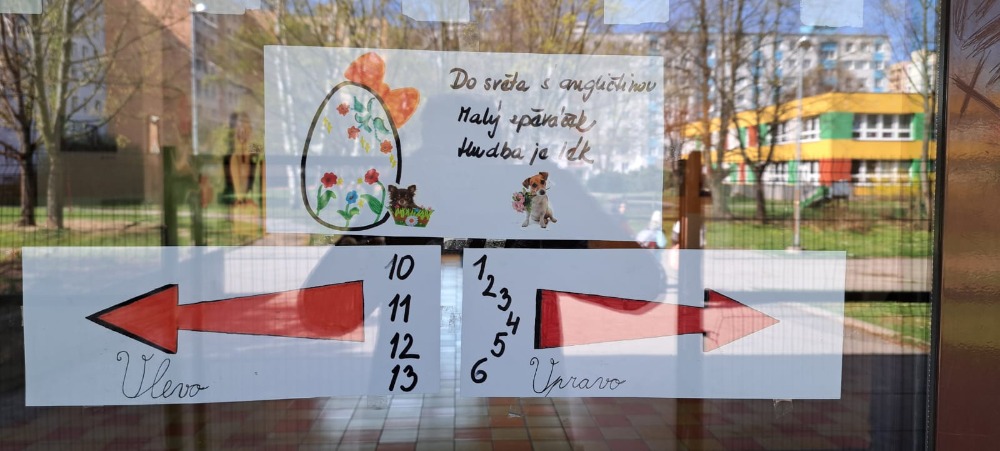 Do světa s angličtinou
Malý zpěváček
Hudba je lék
10
11
12
13
Vlevo
1
2
3
4
5
6
Vpravo